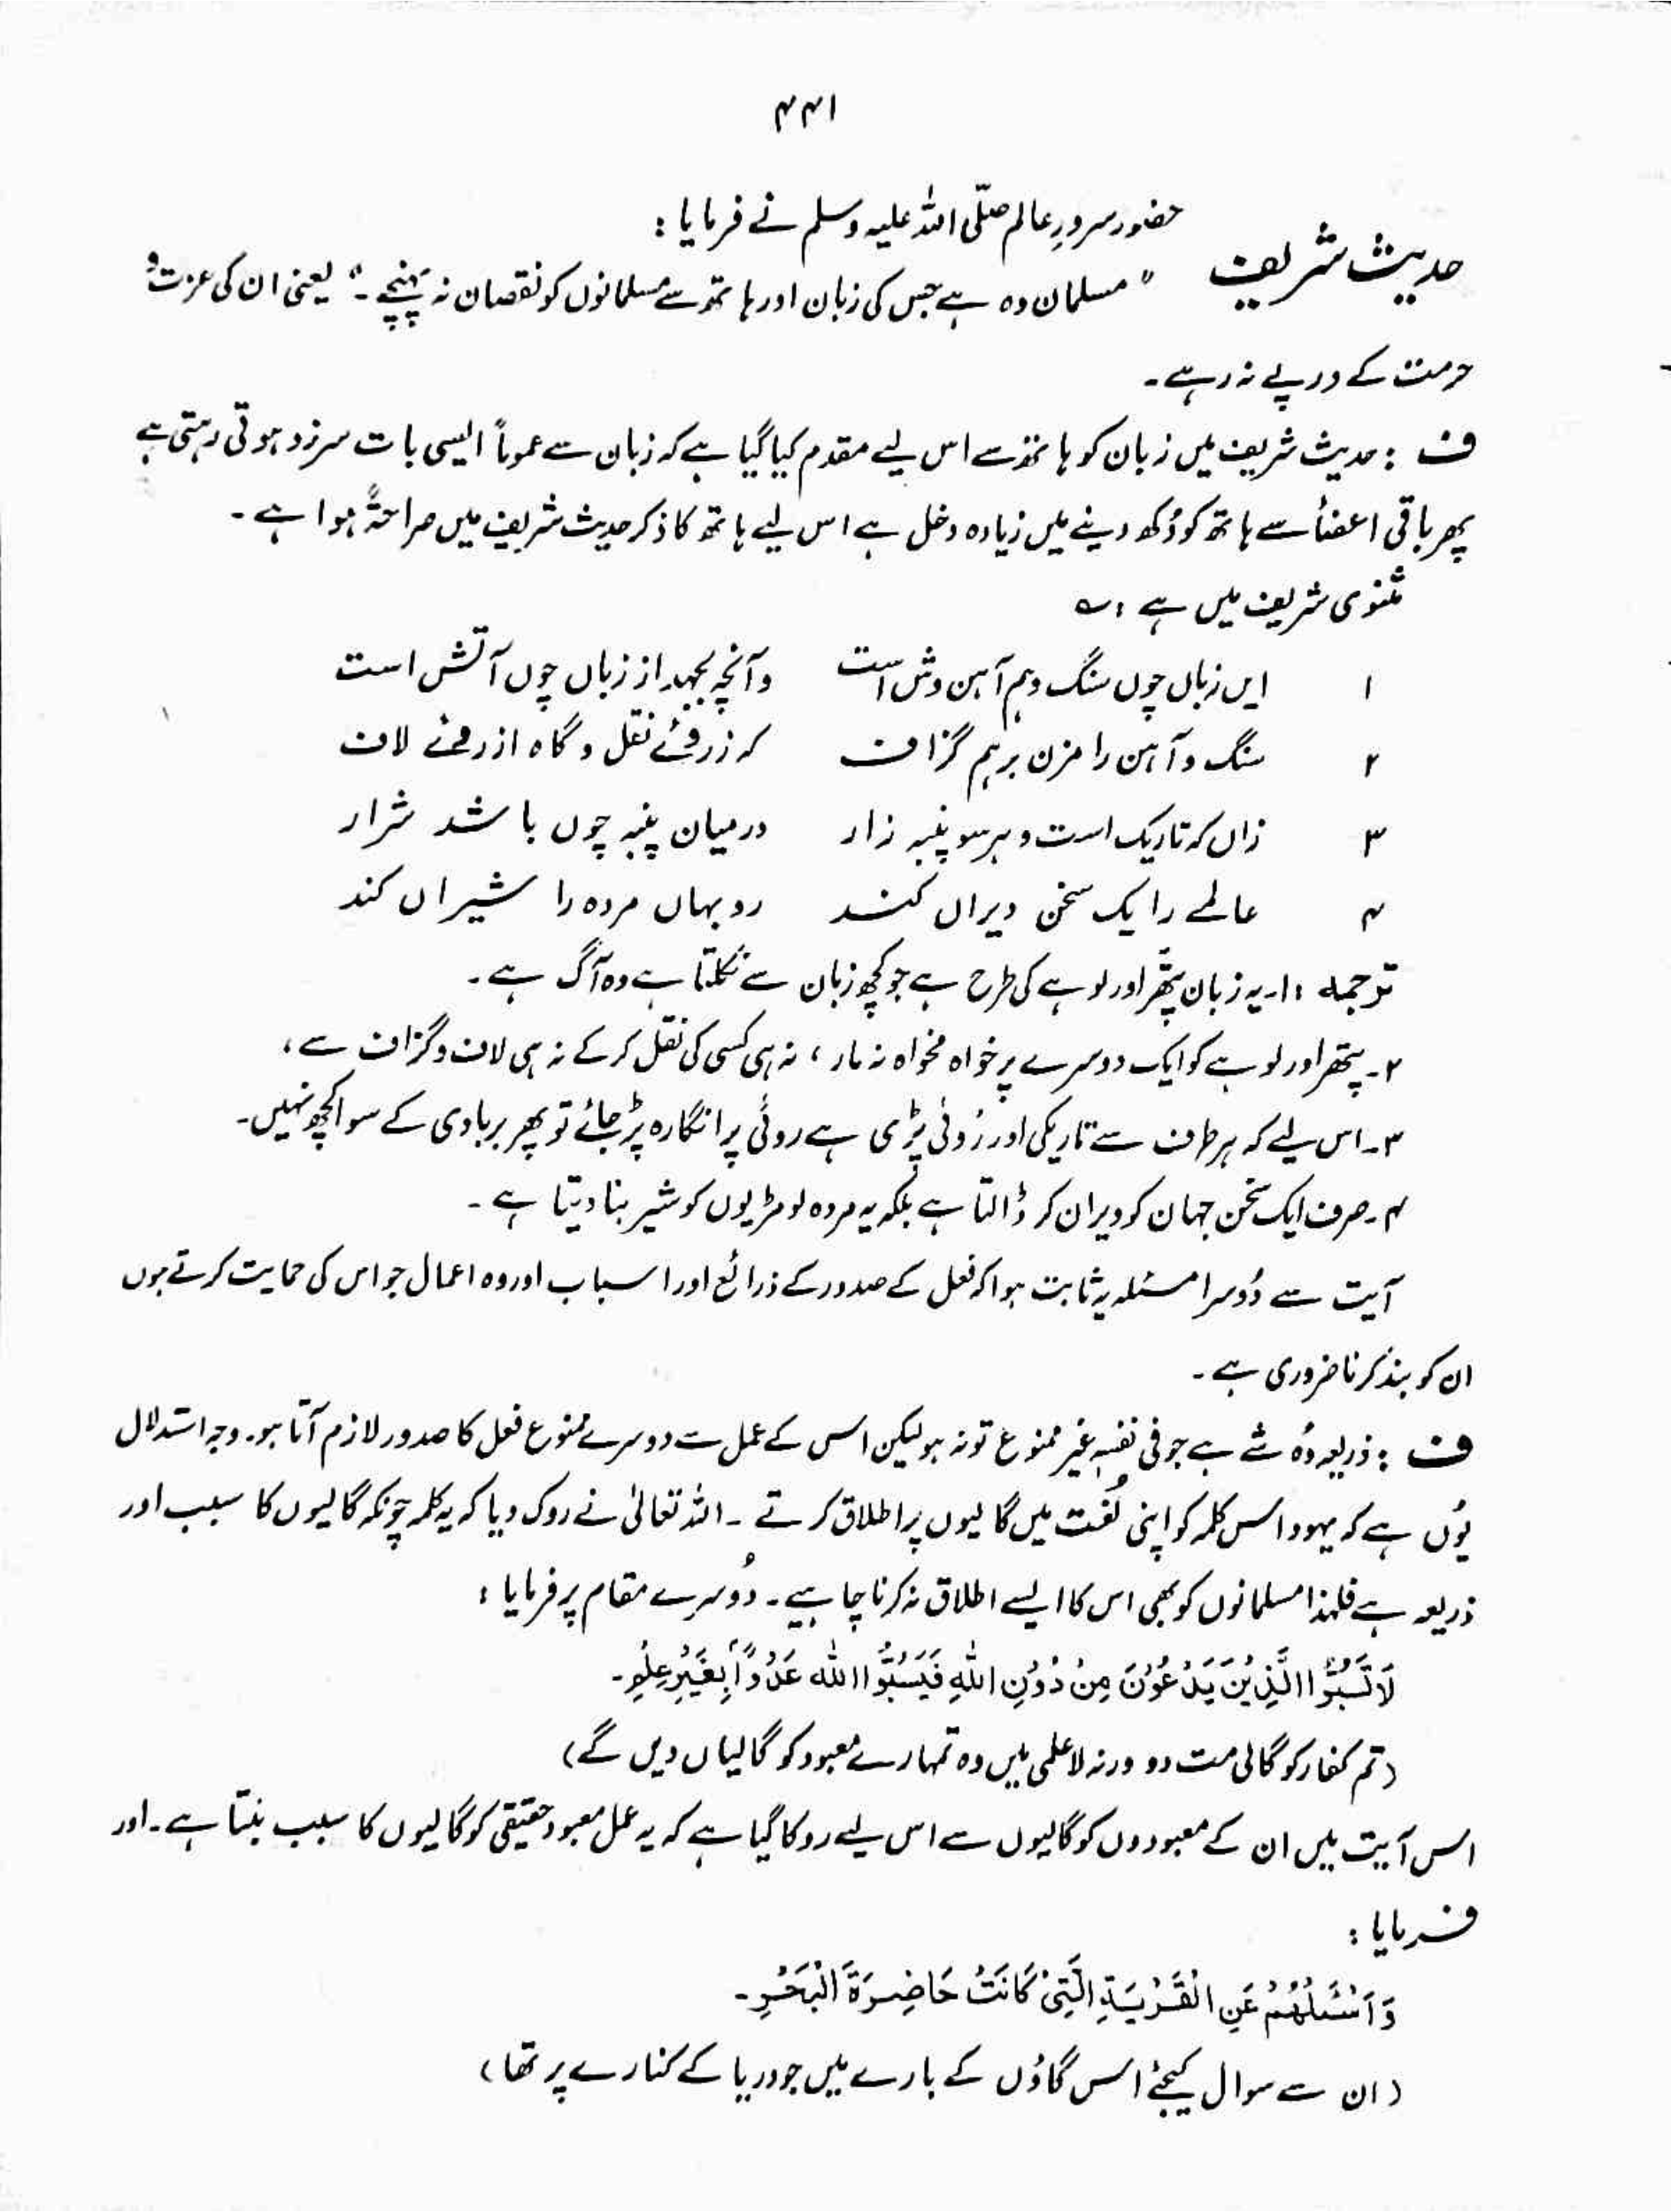 ۴۴۱
حضور سرورِ عالم صلّی اللہ علیہ وسلم نے فرمایا :
حدیث شریف
" مسلمان وہ ہے جس کی زبان اور ہاتھ سے مسلمانوں کو نقصان نہ پہنچے ۔" یعنی ان کی عزت و
حرمت کے درپے نہ رہے ۔
ف : حدیث شریف میں زبان کو ہاتھ سے اس لیے مقدم کیا گیا ہے کہ زبان سے عموماً ایسی بات سرزد ہوتی رہتی ہے
پھر باقی اعضأ سے ہاتھ کو دُکھ دینے میں زیادہ دخل ہے اس لیے ہاتھ کا ذکر حدیث شریف میں صراحتہً ہوا ہے ۔
مثنوی شریف میں ہے : ؎
۱ ایں زباں چوں سنگ و ہم آہن وش است وآنچہ بجہد از زباں چوں آتش است
۲ سنگ و آہن را مزن برہم گزاف کہ ز روئے نقل و گاہ از روئے لاف
۳ زاں کہ تاریک است و ہرسو پنبہ زار درمیان پنبہ چوں باشد شرار
۴ عالمے را یک سخن ویراں کند روبہاں مردہ را شیراں کند
ترجمہ : ۱۔ یہ زبان پتھر اور لوہے کی طرح ہے جو کچھ زبان سے نکلتا ہے وہ آگ ہے ۔
۲۔ پتھر اور لوہے کو ایک دوسرے پر خواہ مخواہ نہ مار ، نہ ہی کسی کی نقل کرکے نہ ہی لاف و گزاف سے ،
۳۔ اس لیے کہ ہر طرف سے تاریکی اور رُوئی پڑی ہے روئی پر انگارہ پڑ جائے تو پھر بربادی کے سوا کچھ نہیں ۔
۴۔ صرف ایک سخن جہان کو ویران کر ڈالتا ہے بلکہ یہ مردہ لومڑیوں کو شیر بنا دیتا ہے ۔
آیت سے دُوسرا مسئلہ یہ ثابت ہوا کہ فعل کے صدور کے ذرائع اور اسباب اور وہ اعمال جو اس کی حمایت کرتے ہوں
ان کو بند کرنا ضروری ہے ۔
ف : ذریعہ وُہ شے ہے جو فی نفسہٖ غیر ممنوع تو نہ ہو لیکن اس کے عمل سے دوسرے ممنوع فعل کا صدور لازم آتا ہو ۔ وجہ استدلال
یُوں ہے کہ یہود اس کلمہ کو اپنی لُغت میں گالیوں پر اطلاق کرتے ۔ اللہ تعالیٰ نے روک دیا کہ یہ کلمہ چونکہ گالیوں کا سبب اور
ذریعہ ہے فلہذا مسلمانوں کو بھی اس کا ایسے اطلاق نہ کرنا چاہیے ۔ دُوسرے مقام پر فرمایا :
لَا تَسُبُّوا الَّذِیْنَ یَدْعُوْنَ مِنْ دُوْنِ اللہِ فَیَسُبُّوا اللہ عَدْوًا بِغَیْرِ عِلْمٍ ۔
(تم کفار کو گالی مت دو ورنہ لاعلمی میں وہ تمہارے معبود کو گالیاں دیں گے)
اس آیت میں ان کے معبودوں کو گالیوں سے اس لیے روکا گیا ہے کہ یہ عمل معبود حقیقی کو گالیوں کا سبب بنتا ہے ۔ اور
فرمایا :
وَاسْئَلْھُمْ عَنِ الْقَرْیَۃِ الَّتِیْ کَانَتْ حَاضِرَۃَ الْبَحْرِ ۔
(ان سے سوال کیجئے اس گاؤں کے بارے میں جو دریا کے کنارے پر تھا)